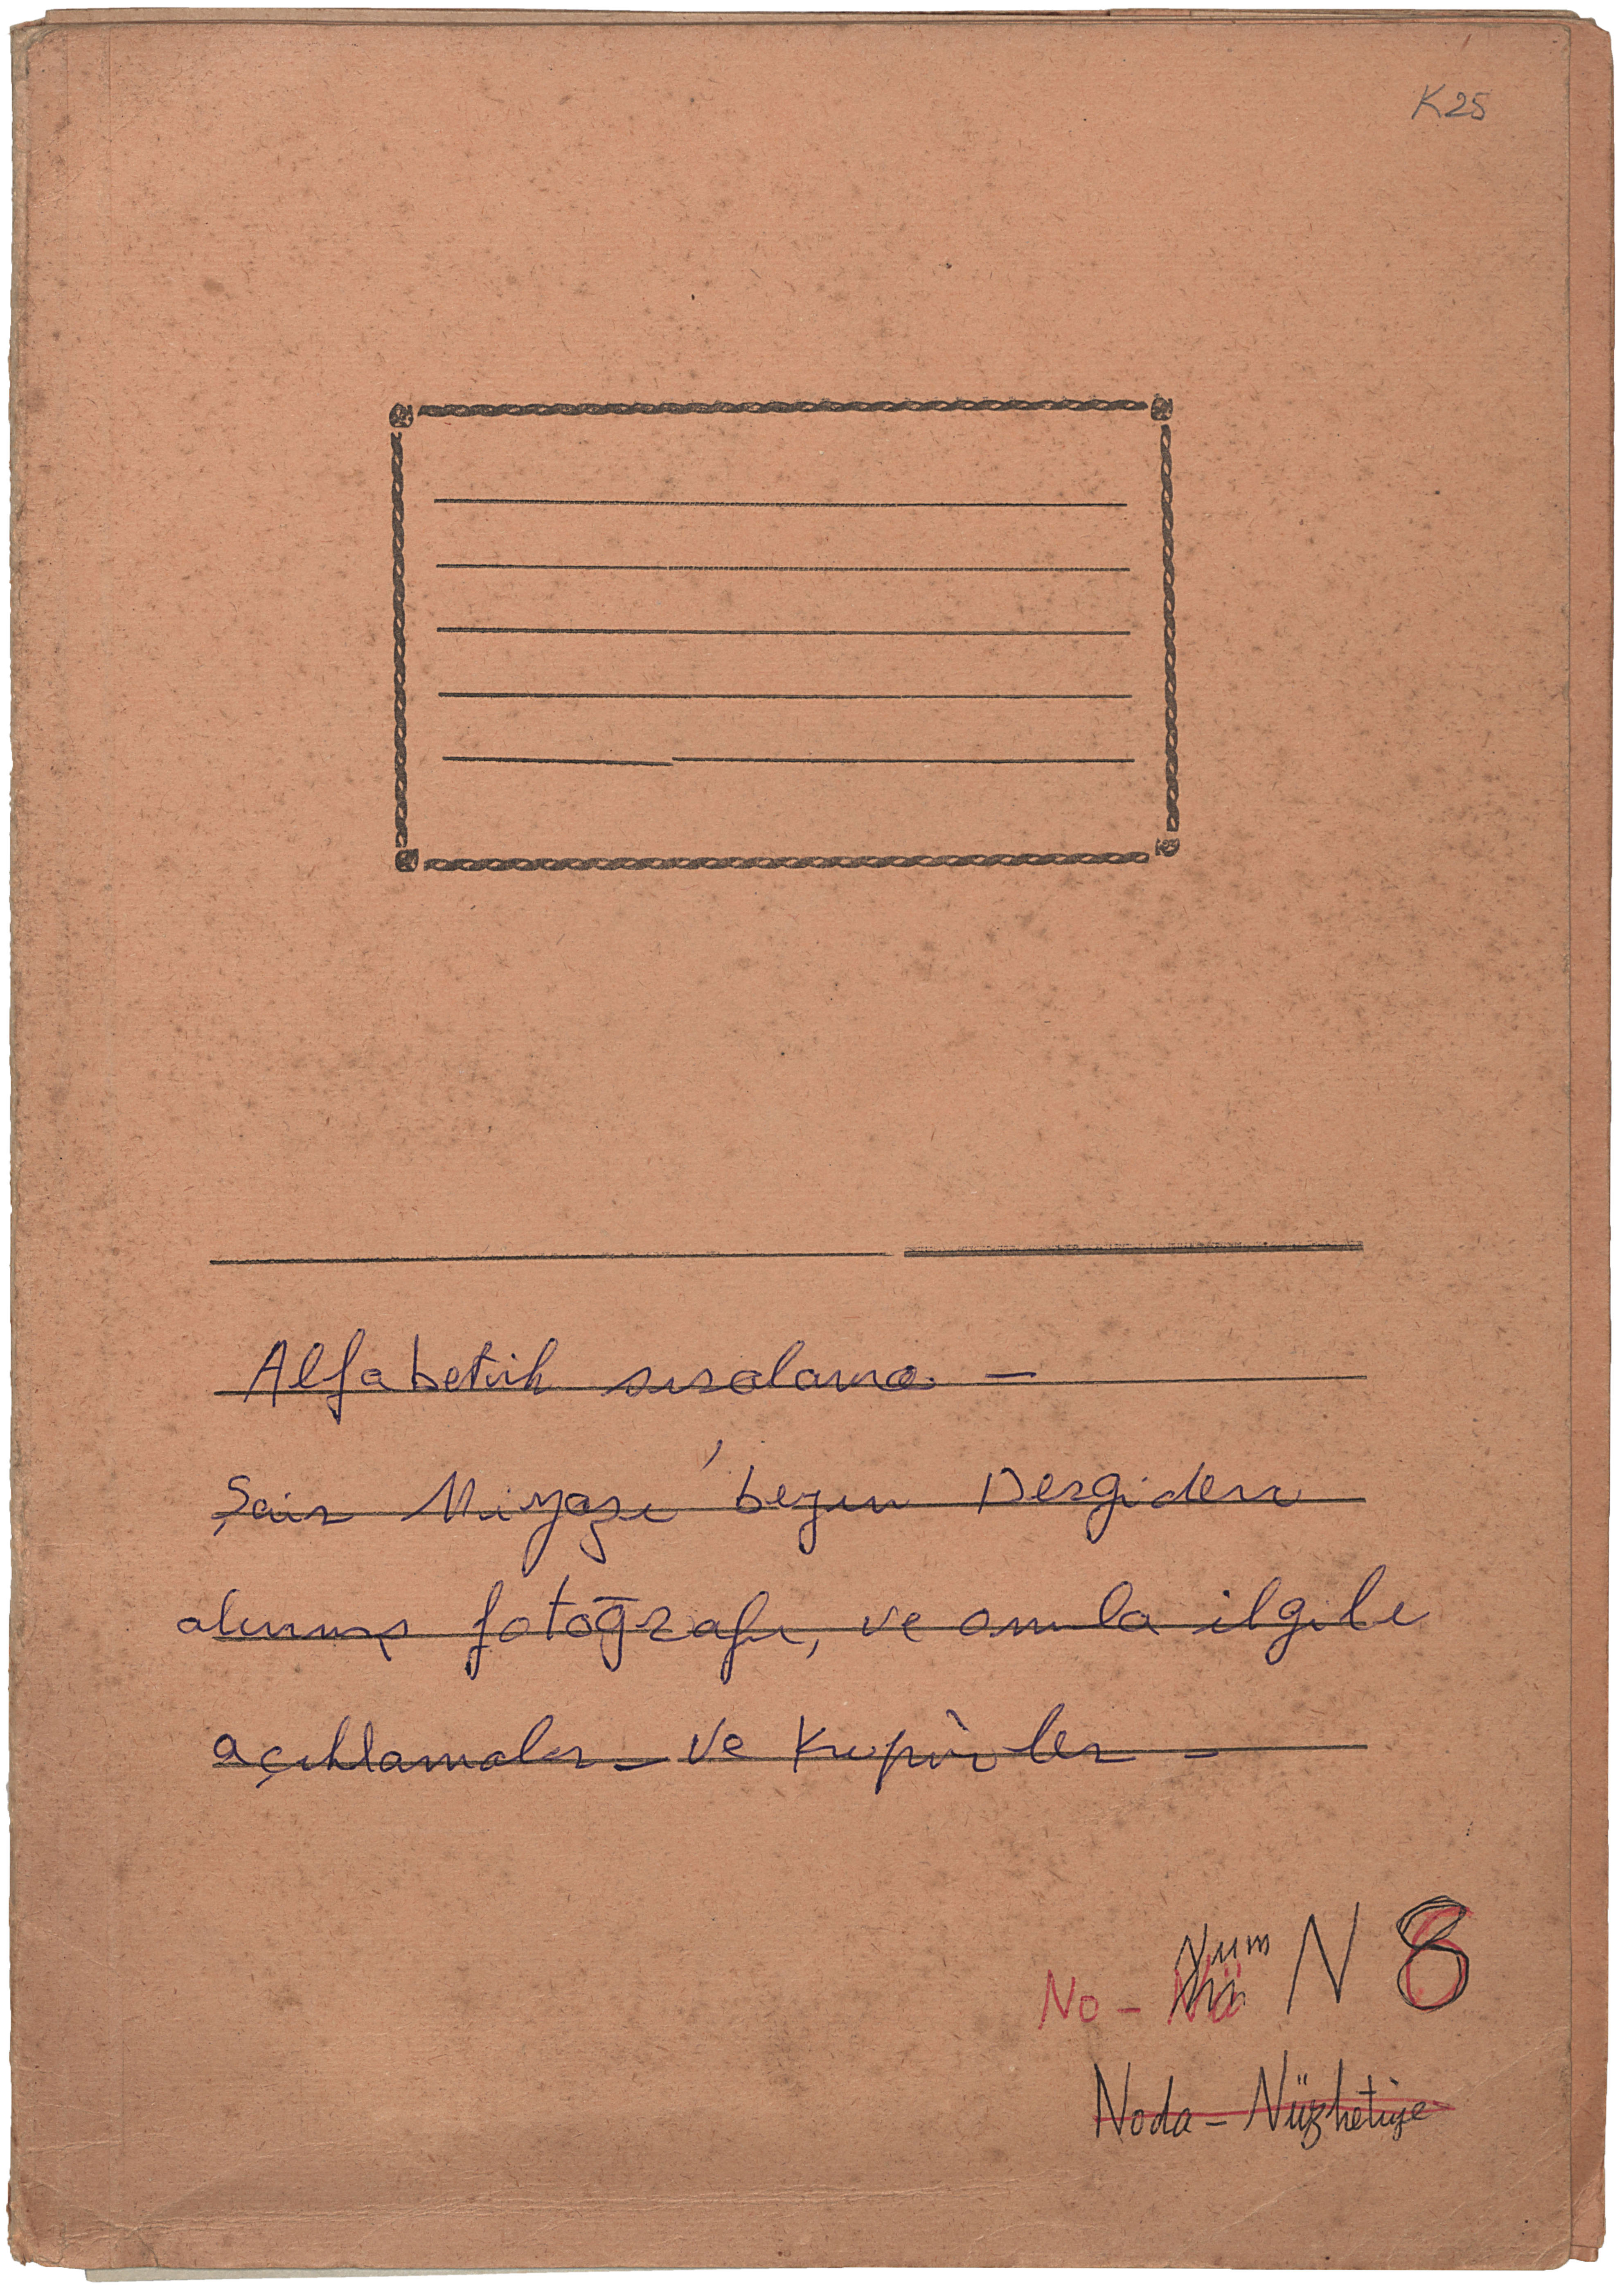 K25
Alfabetik sıralama –
Şair Niyazi beyin Dergiden
alınmış fotoğrafı, ve onunla ilgili
açıklamalar – ve Kupürler –
Num N 8
No –
Noda – Nüzhetiye